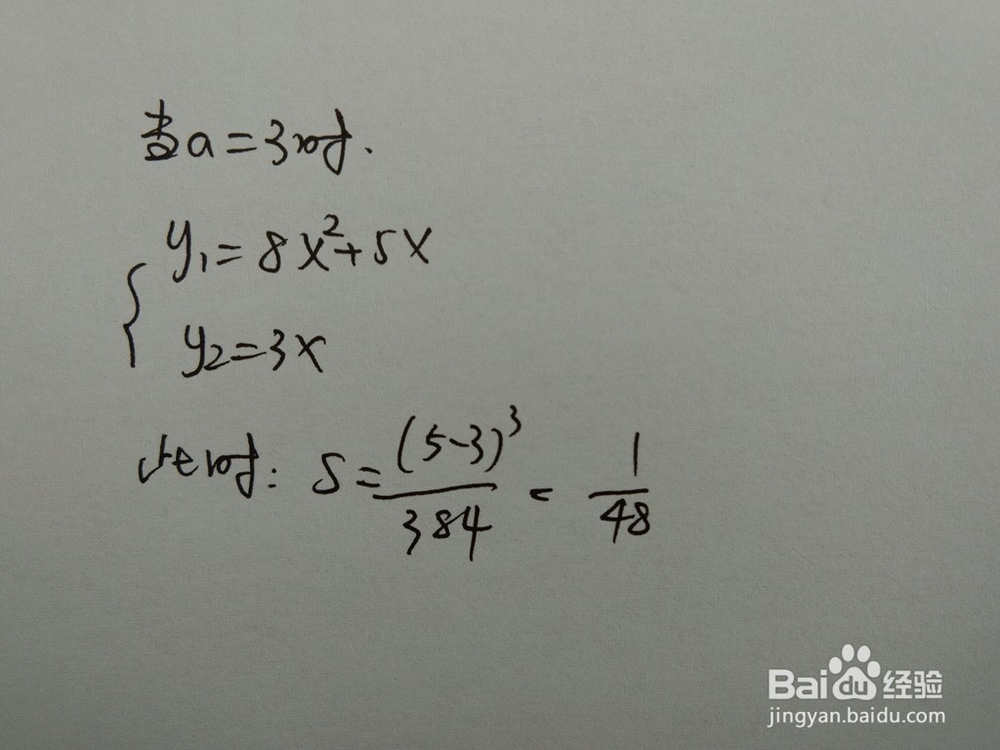 当a=3时.
y₁=8x²+5x
y₂=3x
此时: S=(5-3)³/384=1/48
Baidu经验
jingyan.baidu.com